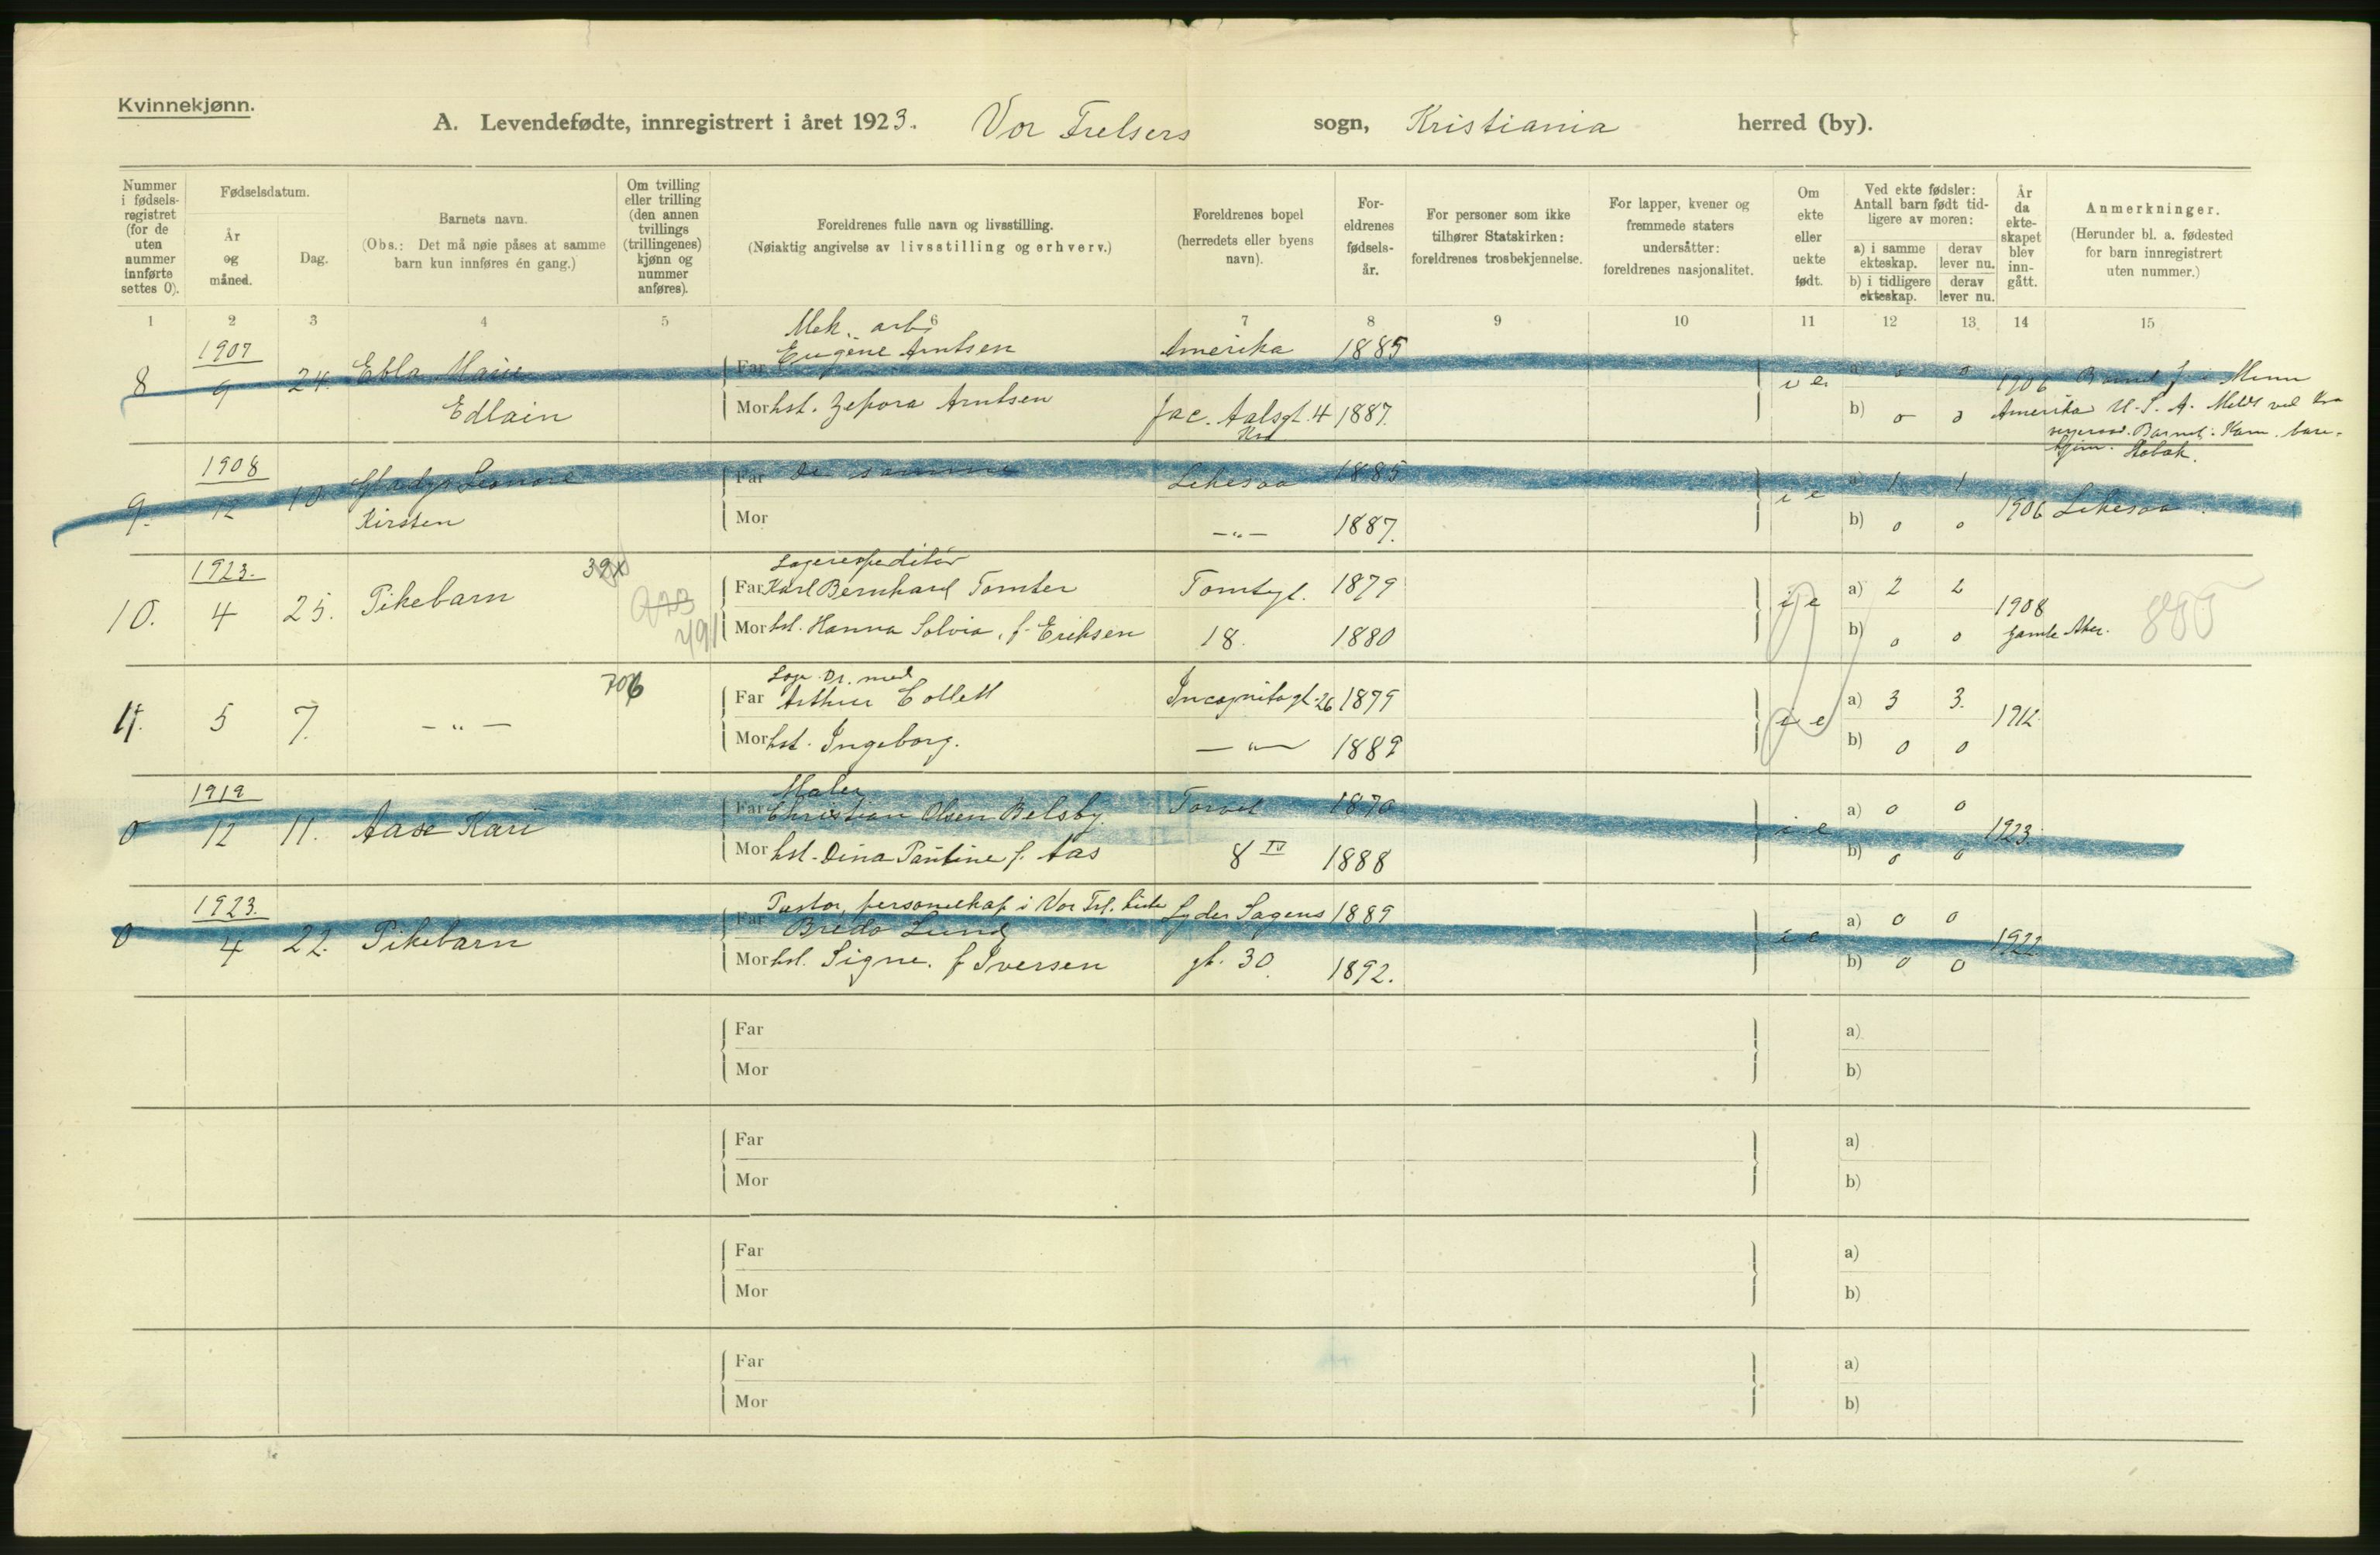 Kvinnekjønn.
A. Levendefødte, innregistrert i året 1923. Vor Frelsers sogn, Kristiania herred (by).
Nummer i fødsels-registret (for de uten nummer innførte settes 0).
Fødselsdatum.
År og måned.
Dag.
Barnets navn.
(Obs.: Det må nøie påses at samme barn kun innføres én gang.)
Om tvilling eller trilling (den annen tvillings (trillingenes) kjønn og nummer anføres).
Foreldrenes fulle navn og livsstilling.
(Nøiaktig angivelse av livsstilling og erhverv.)
Foreldrenes bopel (herredets eller byens navn).
For-eldrenes fødsels-år.
For personer som ikke tilhører Statskirken: foreldrenes trosbekjennelse.
For lapper, kvener og fremmede staters undersåtter: foreldrenes nasjonalitet.
Om ekte eller uekte født.
Ved ekte fødsler: Antall barn født tid-ligere av moren:
a) i samme ekteskap.
derav lever nu.
b) i tidligere ekteskap.
derav lever nu.
År da ekte-skapet blev inn-gått.
Anmerkninger.
(Herunder bl. a. fødested for barn innregistrert uten nummer.)
1 2 3 4 5 6 7 8 9 10 11 12 13 14 15
Mek. arb.
1907
8 9 24. Ebla Marie Far Eugene Arntsen Amerika 1885 a) 0 0
Edlain Mor hst. Zefora Arntsen Jac. Aalsgt. 4 1887. b) 0 0
Kra
1906 Minn
Amerika U.S.A.
1908
9. 12 10 Gladys Leonore Far De samme Likesaa 1885 i e a) 1 1
Kirsten Mor — " — 1887. b) 0 0 1906 Likesaa
1923. Lagerekspeditør
10. 4 25. Pikebarn Far Karl Bernhard Tomter Tomtegt. 1879 i e a) 2 2
Mor hst. Hanna Solvia, f. Eriksen 18. 1880 b) 0 0
1908
Gamle Aker.
491
Læge Dr. med.
11. 5 7. — " — 706 Far Arthur Collett Incognitogt. 26 1879 i e a) 3 3.
Mor hst. Ingeborg. — " — 1889 b) 0 0 1912.
1919 Maler
0 12 11. Aase Kari Far Christian Olsen Belsby. Torvet 1870 i e a) 0 0
Mor hst. Dina Pauline f. Aas 8 IV 1888 b) 0 0 1923.
1923. Pastor, personelkap. i Vor Frl. kirke
0 4 22. Pikebarn Far Bredo Lund Lyder Sagens 1889 i e a) 0 0
Mor hst. Signe. f Iversen gt. 30. 1892. b) 0 0 1922
Far a)
Mor b)
Far a)
Mor b)
Far a)
Mor b)
Far a)
Mor b)